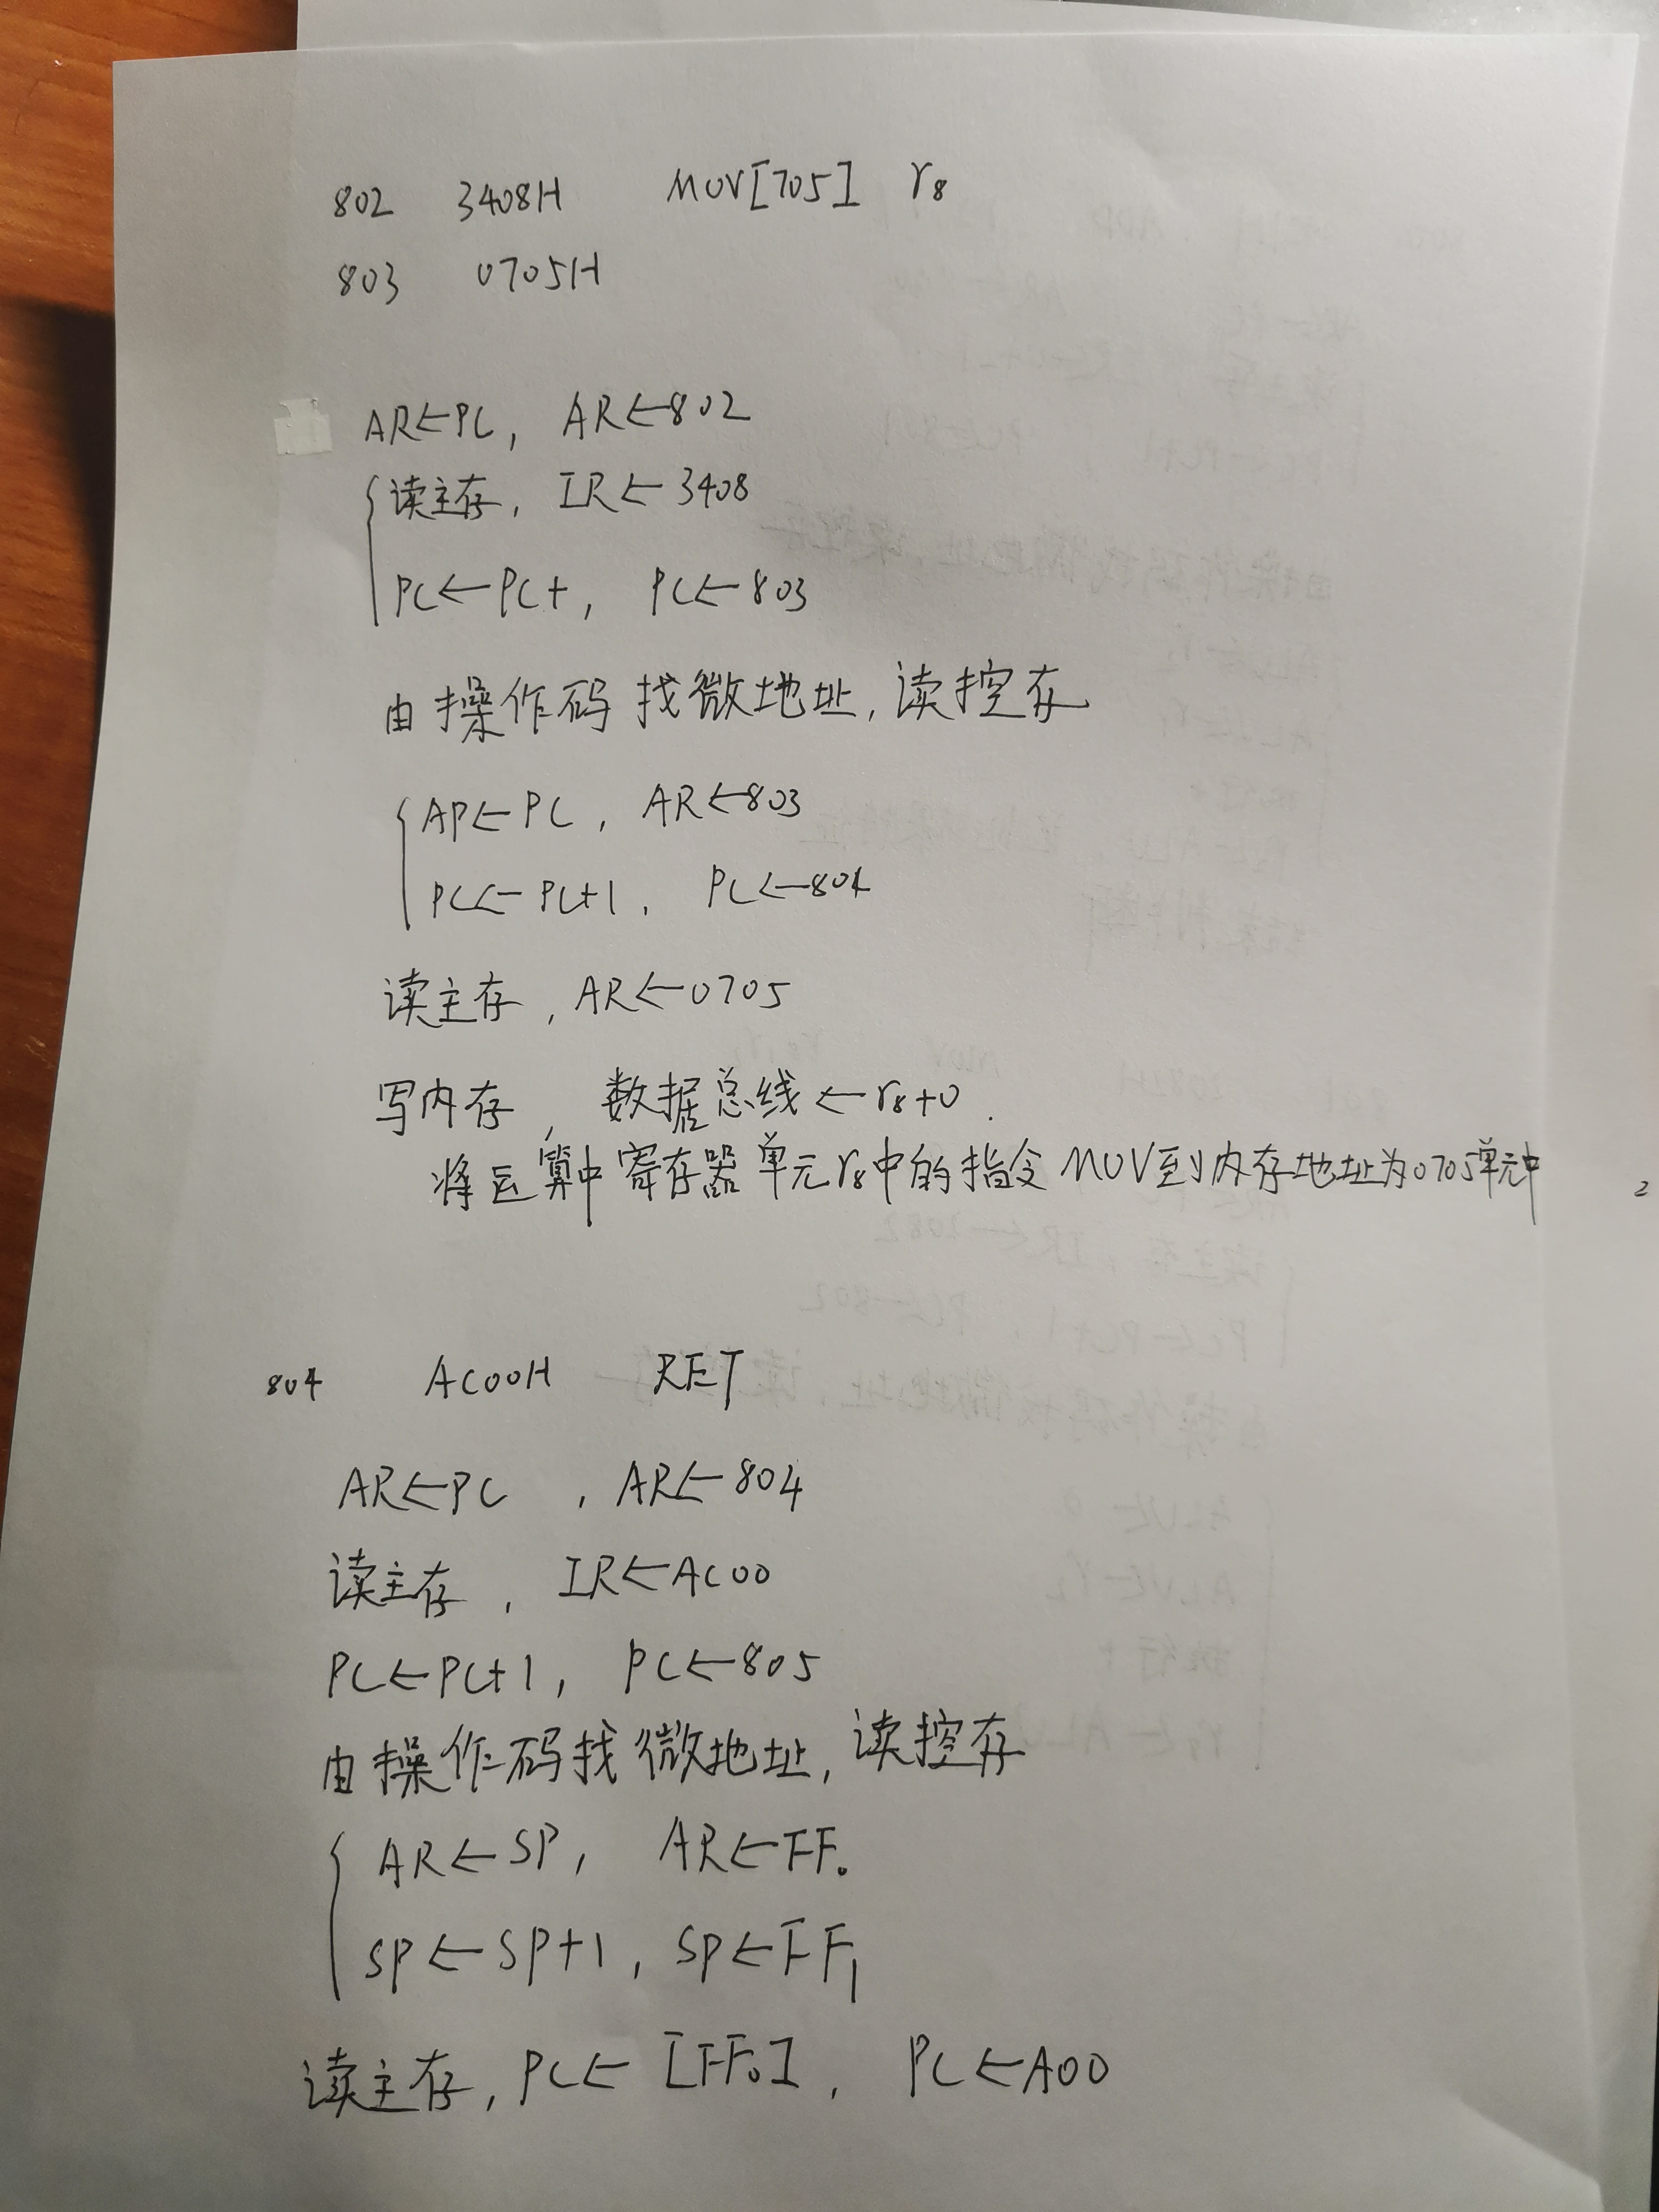 802 3408H MOV[705] r8
803 0705H
AR←PC, AR←802
读主存, IR←3408
PC←PC+, PC←803
由操作码找微地址,读控存
AP←PC, AR←803
PC←PC+1, PC←804
读主存, AR←0705
写内存, 数据总线←r8+0.
将运算中寄存器单元r8中的指令MOV到内存地址为0705单元中
2
804 AC00H RET
AR←PC, AR←804
读主存, IR←AC00
PC←PC+1, PC←805
由操作码找微地址,读控存
AR←SP, AR←FF0
SP←SP+1, SP←FF1
读主存, PC←[FF0], PC←A00